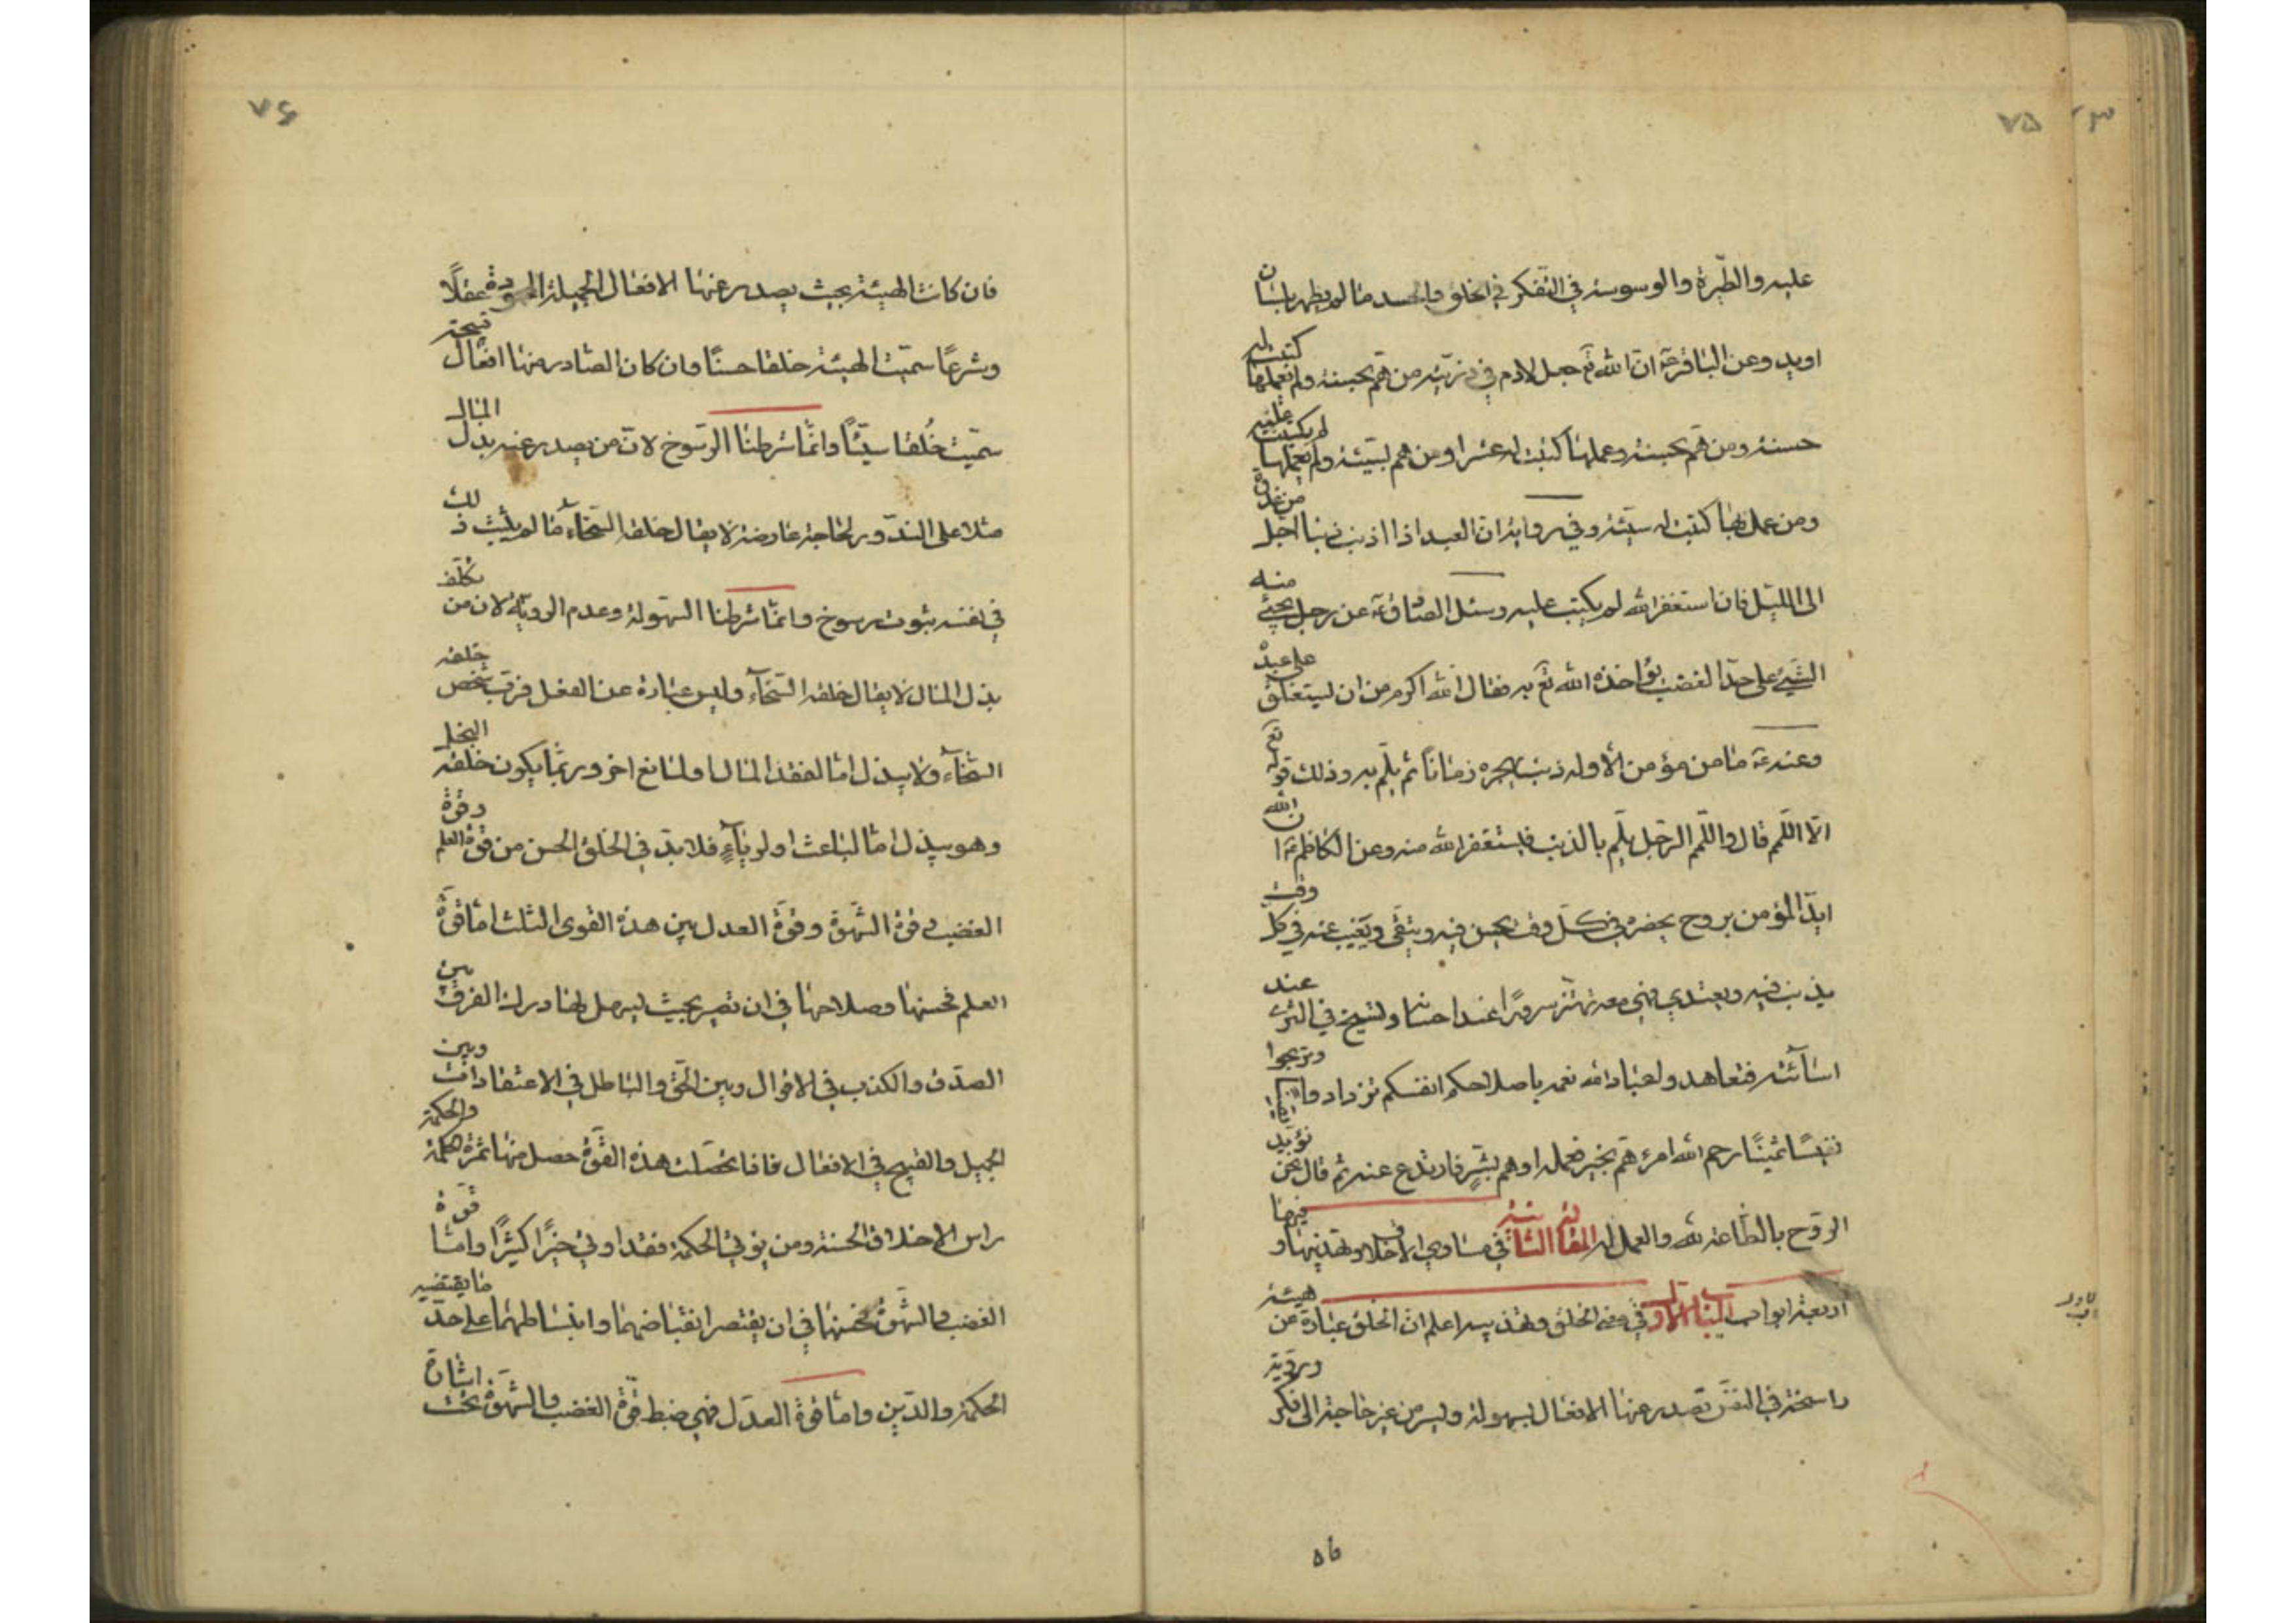 ٧٥
عليه والطّيرة والوسوسة في التفكر في الخلق والحسد ما لم يظهر بلسان
او يد وعن الباقر ع انّ الله تع جعل لادم في ذريّته من همّ بحسنة ولم يعملها كتبت له
حسنة ومن همّ بحسنة وعملها كتبت له عشرا ومن هم بسيّئة ولم يعملها لم يكتب عليه
ومن عمل بها كتبت له سيّئة وفي رواية انّ العبد اذا اذنب ذنبا اجل من غدوة
الى الليل فان استغفر الله لم يكتب عليه وسئل الصادق ع عن رجل يجيئ منه
الشيئ على حدّ الغضب يؤاخذه الله تع به فقال الله اكرم من ان يستغلق على عبده
وعنه ع ما من مؤمن الا وله ذنب يهجره زمانا ثم يلمّ به وذلك قوله تع
الّا اللّمم قال واللّمم الرّجل يلمّ بالذنب فيستغفر الله منه وعن الكاظم ع ان الله
ايّد المؤمن بروح يحضره في كلّ وقت يحسن فيه ويتّقى ويغيب عنه في كل وقت
يذنب فيه ويعتدي فهي معه تهتزّ سرورًا عند احسانه وتسيخ في الثرى عند
اسائته فتعاهدوا عباد الله نعمه باصلاحكم انفسكم تزدادوا يقينا وتربحوا
نفيسًا ثمينًا رحم الله امرء همّ بخير فعمله او هم بشرٍّ فارتدع عنه ثم قال نحن نؤيد
الروح بالطاعة لله والعمل له المقالة الثانية في مساوي الاخلاق وتهذيبها وفيها
اربعة ابواب الباب الاول في معنى الخلق وتهذيبه اعلم ان الخلق عبارة عن هيئة
راسخة في النفس تصدر عنها الافعال بسهولة ويسر من غير حاجة الى فكر ورويّة
٧٦
فان كانت الهيئة بحيث يصدر عنها الافعال الجميلة المحمودة عقلًا
وشرعًا سمّيت الهيئة خلقا حسنًا وان كان الصادر منها افعال قبيحة
سمّيت خُلقا سيّئًا وانّما شرطنا الرّسوخ لانّ من يصدر عنه بذل المال
مثلا على الندور لحاجة عارضة لا يقال خلقه السّخاء ما لم يثبت ذلك
في نفسه ثبوت رسوخ وانّما شرطنا السّهولة وعدم الرويّة لان من تكلّف
بذل المال لا يقال خلقه السّخآء وليس عبارة عن الفعل فربّ شخص خلقه
السّخآء ولا يبذل امّا لفقد المال او لمانع اخر وربّما يكون خلقه البخل
وهو يبذل امّا لباعث او لريآءٍ فلا بدّ في الخلق الحسن من قوّة العلم وقوّة
الغضب وقوّة الشّهوة وقوّة العدل بين هذه القوى الثلث امّا قوّة
العلم فحسنها وصلاحها في ان تصير بحيث يسهل لها درك الفرق بين
الصدق والكذب في الاقوال وبين الحقّ والباطل في الاعتقادات وبين
الجميل والقبيح في الافعال فاذا تحصّلت هذه القوّة حصل منها ثمرة الحكمة والحكمة
راس الاخلاق الحسنة ومن يؤتى الحكمة فقد اوتي خيرًا كثيرًا وامّا قوّة
الغضب والشّهوة فحسنها في ان يقتصر انقباضهما وانبساطهما على حدّ ما يقتضيه
الحكمة والدّين وامّا قوّة العدل فهي ضبط قوّة الغضب والشّهوة تحت اشارة